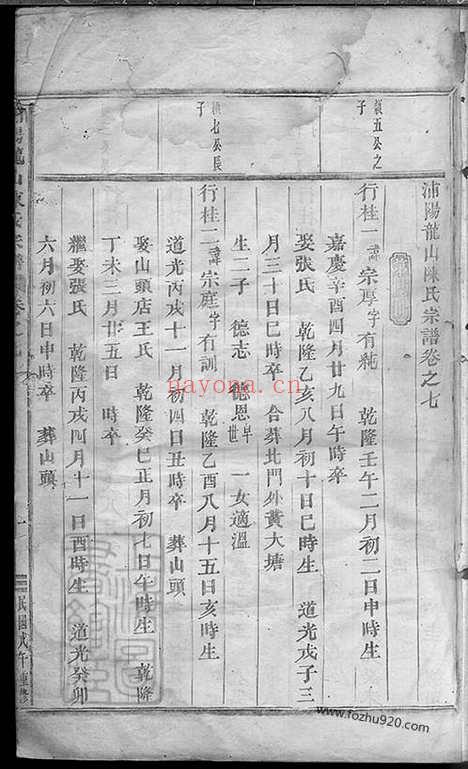 浦陽龍山陳氏宗譜卷之七
五公之
子
行桂一諱宗厚字有純 乾隆壬午二月初二日申時生
嘉慶辛酉四月廿九日午時卒
娶張氏 乾隆乙亥八月初十日巳時生 道光戊子三
月三十日巳時卒 合葬北門外黃大塘
生二子 德志 德恩早世 一女適溫
七公長
子
行桂二諱宗庭字有訓 乾隆乙酉八月十五日亥時生
道光丙戌十一月初四日丑時卒 葬山頭
娶山頭店王氏 乾隆癸巳正月初七日午時生 乾隆
丁未三月廿五日 時卒
繼娶張氏 乾隆丙戌四月十一日酉時生 道光癸卯
六月初六日申時卒 葬山頭
陽龍山陳氏宗譜 卷之七
民國戊午重修
nayona.cn
www.fozhu920.com